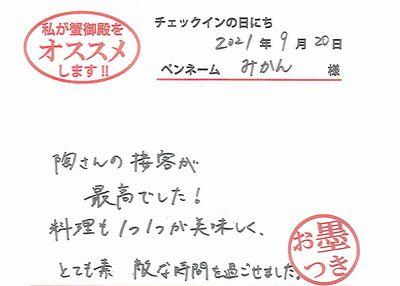 私が蟹御殿を
オススメ
します!!
チェックインの日にち
2021年9月20日
ペンネーム みかん 様
陶さんの接客が
最高でした!
料理も1つ1つが美味しく、
とても素敵な時間を過ごせました。
お墨つき